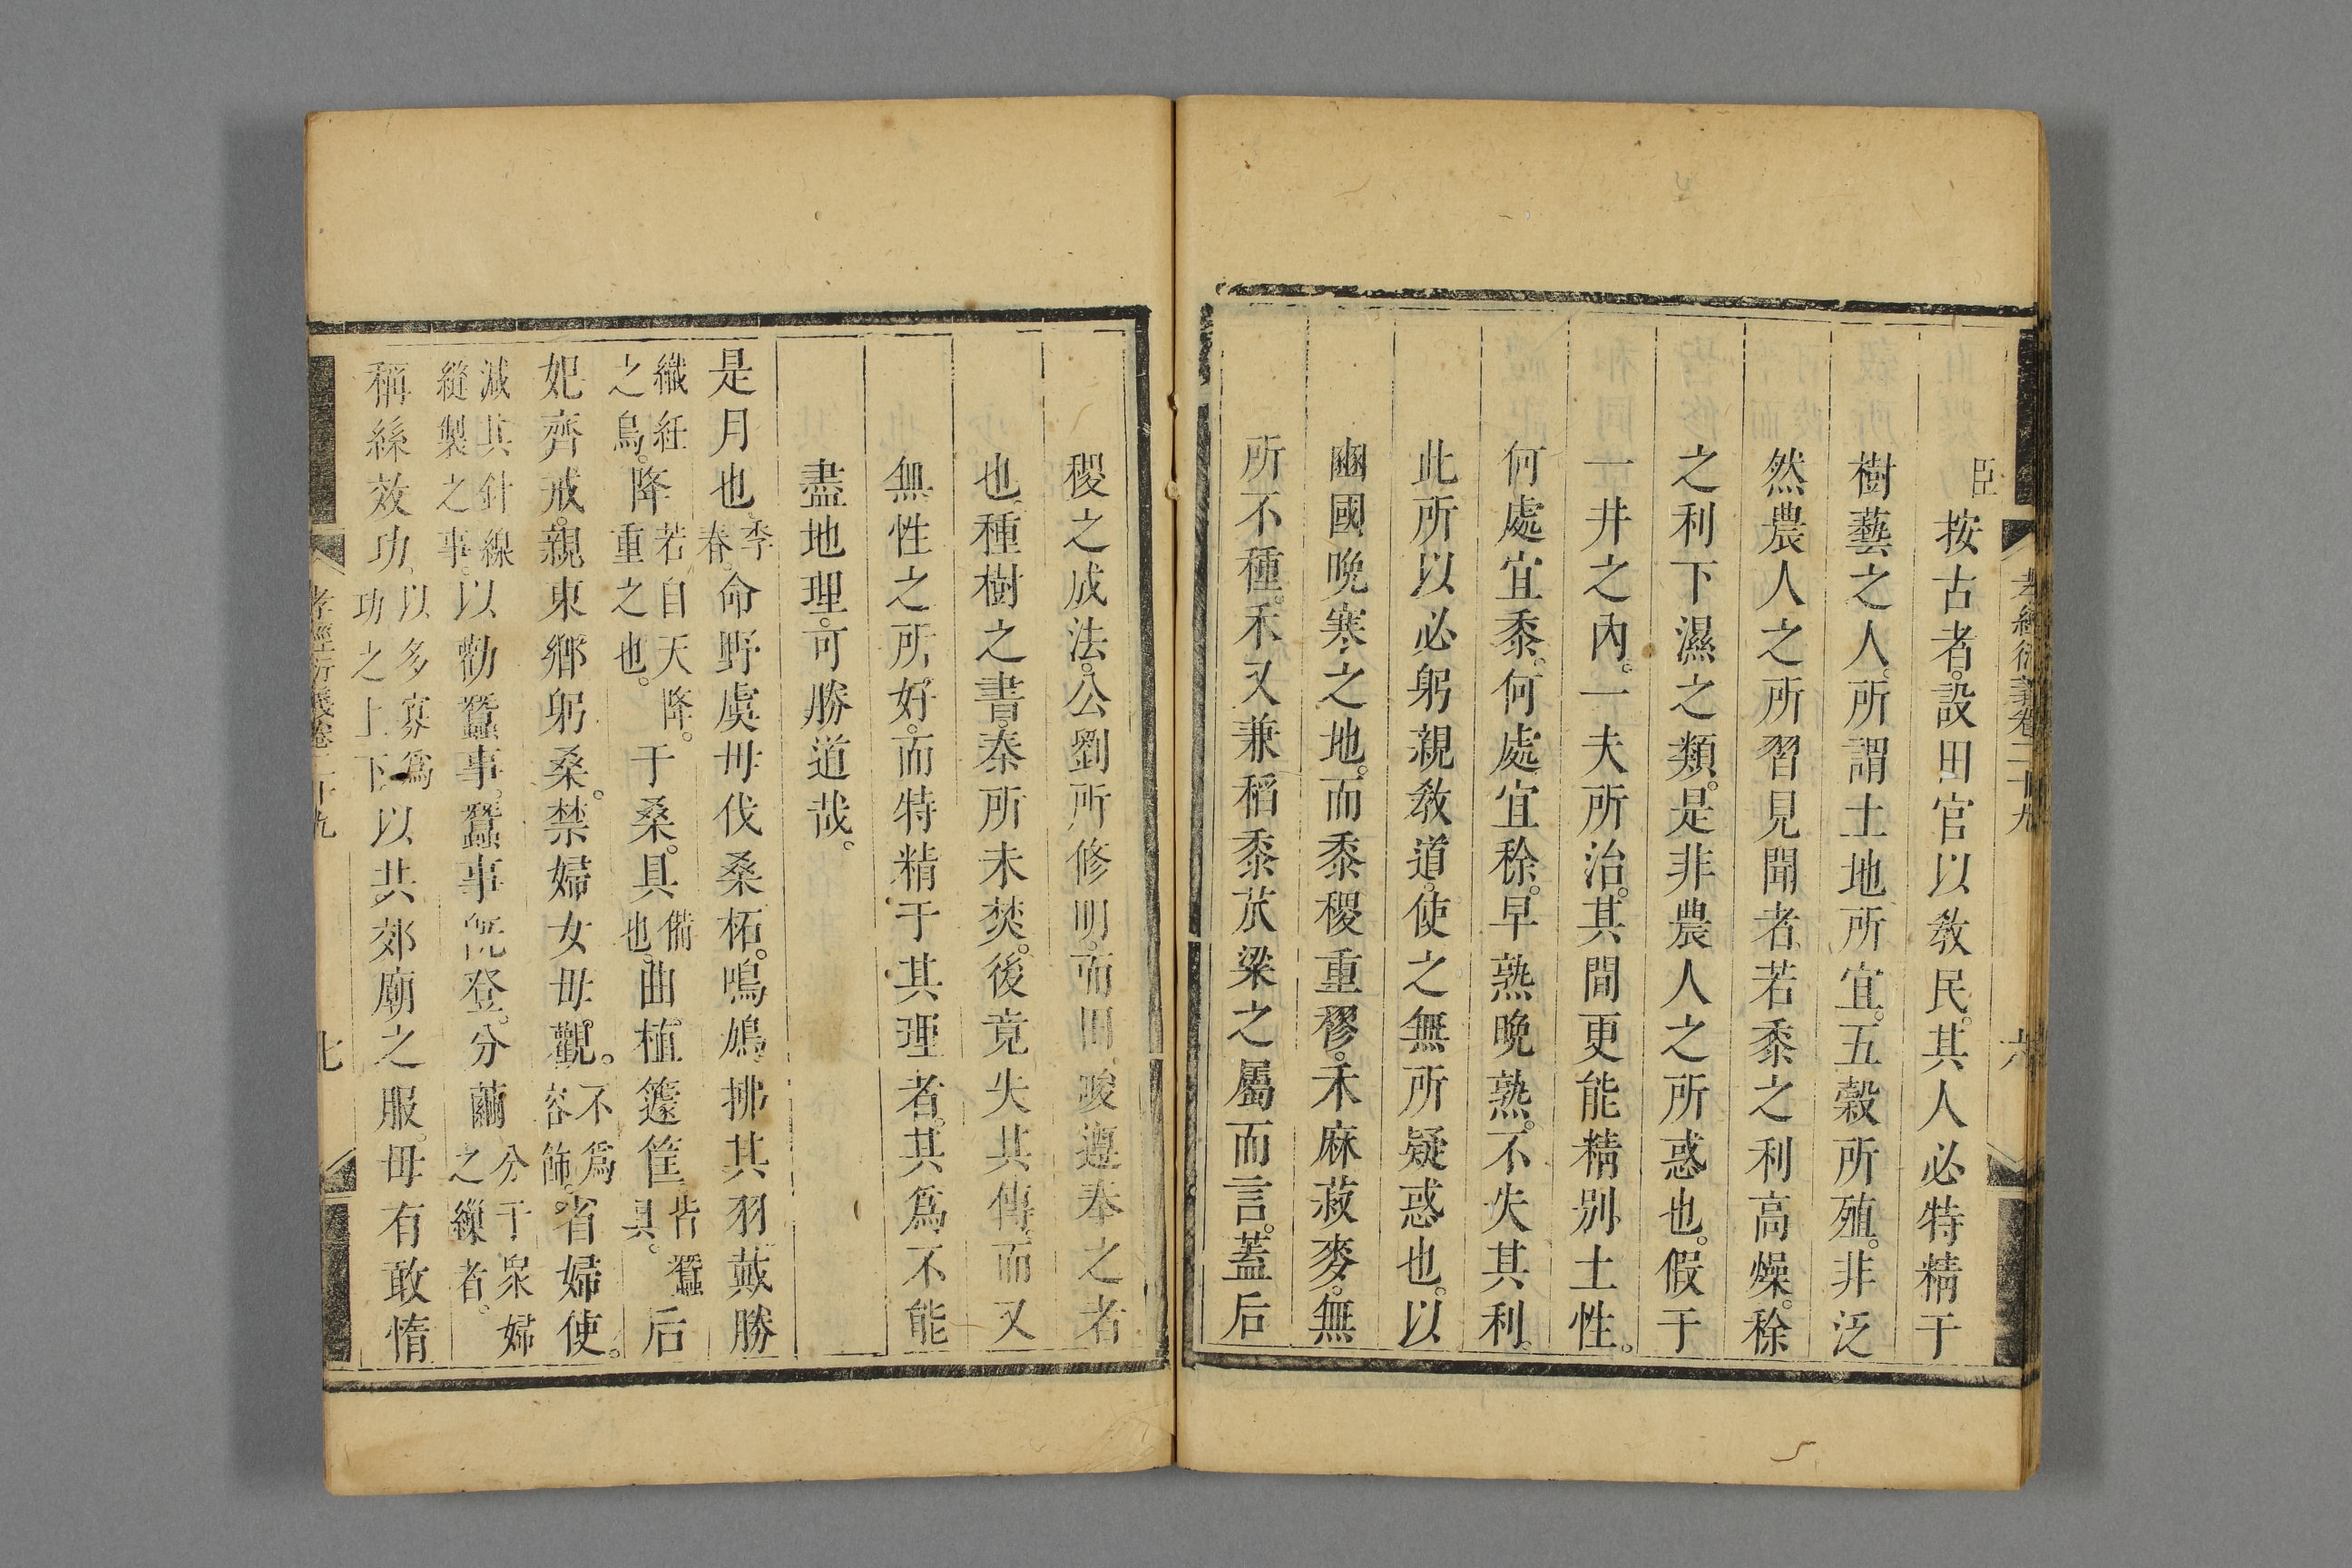 孝經衍義卷二十九
六
臣按古者。設田官以敎民。其人必特精于
樹藝之人。所謂土地所宜。五穀所殖。非泛
然農人之所習見聞者。若黍之利高燥。稌
之利下濕之類。是非農人之所惑也。假于
一井之內。一夫所治。其間更能精別土性。
何處宜黍。何處宜稌。早熟晚熟。不失其利。
此所以必躬親敎道。使之無所疑惑也。以
豳國晚寒之地。而黍稷重穋。禾麻菽麥。無
所不種。禾又兼稻黍苽粱之屬而言。蓋后
稷之成法。公劉所修明。而田畯遵奉之者
也。種樹之書。秦所未焚。後竟失其傳。而又
無性之所好。而特精于其理者。其爲不能
盡地理。可勝道哉。
是月也。季春。命野虞毋伐桑柘。鳴鳩拂其羽。戴勝
織紝之鳥。降若自天降。重之也。于桑。具備也。曲植籧筐。皆蠶具。后
妃齊戒。親東鄉躬桑。禁婦女毋觀。不爲容飾。省婦使。
減其針線縫製之事。以勸蠶事。蠶事旣登。分繭分于衆婦之繅者。
稱絲效功。以多寡爲功之上下。以共郊廟之服。毋有敢惰
孝經衍義卷二十九
七